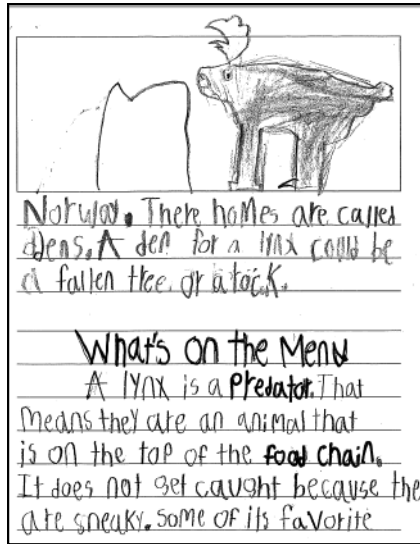 Norway. There homes are called
dens. A den for a lynx could be
a fallen tree. or a rock.
What's on the Menu
A lynx is a predator. That
means they are an animal that
is on the top of the food chain.
It does not get caught because the
are sneaky. some of its favorite